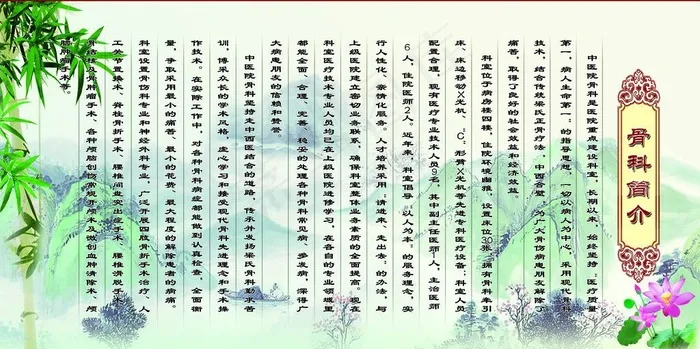 骨科简介
中医院骨科是医院重点建设科室，长期以来，始终坚持：医疗质量
第一，病人生命第一：的指导思想，一切以病人为中心，采用现代骨科
技术，结合传统梁氏正骨疗法，中西合壁，为广大骨伤病患朋友解除了
痛苦，取得了良好的社会效益和经济效益。
科室位于病房楼四楼，住院环境幽雅，设置床位30张，拥有骨科牵引
床、床边移动X光机、：C：形臂X光机等先进专科医疗设备；科室人员
配置合理，现有医疗专业技术人员9名，其中副主任医师1人，主治医师
6人，住院医师2人。近年来，科室倡导：以人为本：的服务理念，实
行人性化、亲情化服务。人才培养采用：请进来，走出去：的办法，与
上级医院建立密切业务联系，确保科室整体业务素质的全面提高。现在
科室医疗技术专业人员均已在上级医院进修学习，在各自的专业领域里
都能全面、合理、完善、稳妥的处理各种骨科常见病、多发病，深得广
大病患朋友的信赖和赞誉。
中医院骨科坚持走中西医结合的道路，传承并发扬梁氏骨科勤学苦
训，博采众长的学术风格，虚心学习和接受现代骨科先进理念和手术操
作技术。在实际工作中，对各种骨科病症都能做到认真检查，全面衡
量，争取采用最小的痛苦、最小的花费，最大程度的解除患者的病痛。
科室设置骨伤科专业和神经外科专业，广泛开展四肢骨折手术治疗、人
工关节置换术、脊柱骨折手术、腰椎间盘突出症手术、腰椎滑脱手术、
骨结核及骨肿瘤手术、各种颅脑创伤常规开颅术及微创血肿清除术、颅
脑肿瘤手术等。